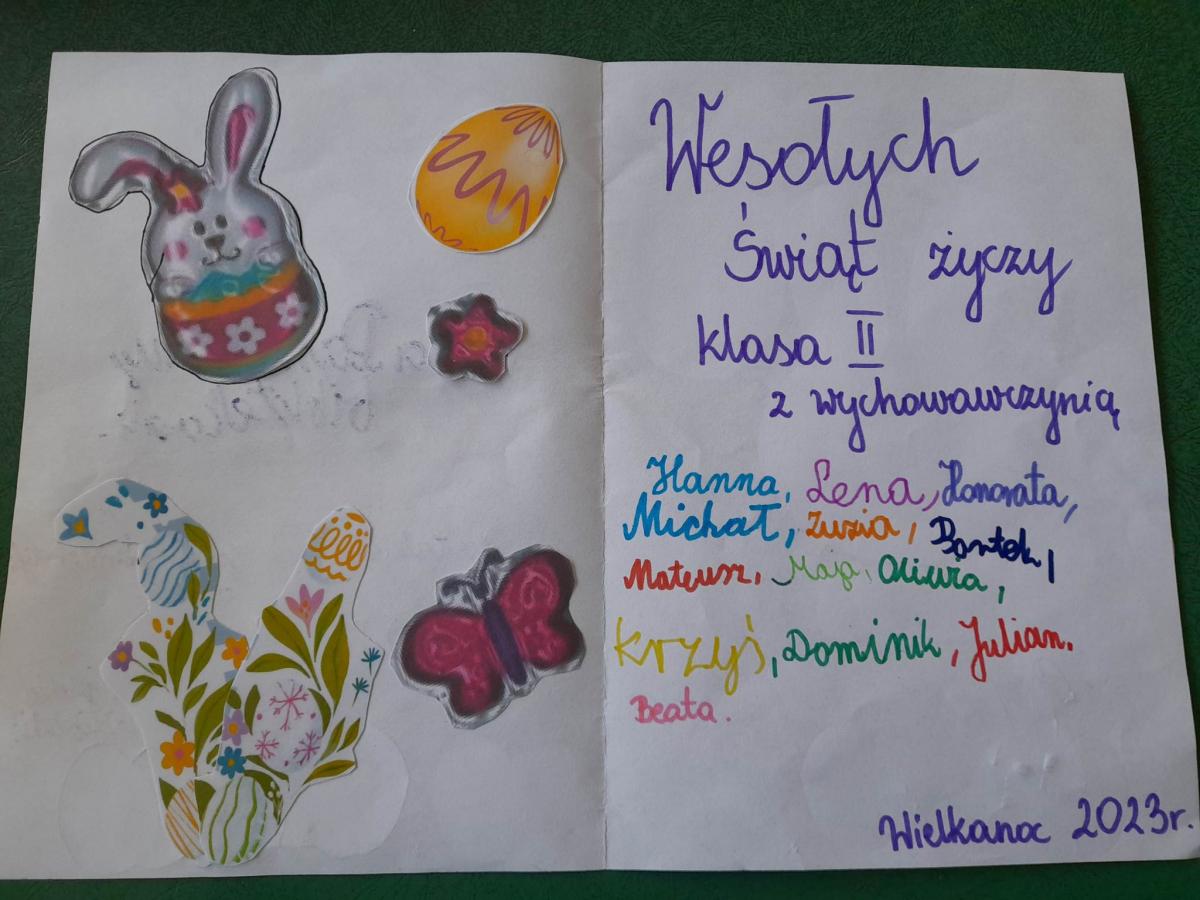 Wesołych
Świąt życzy
klasa II
z wychowawczynią
Hanna, Lena, Honorata,
Michał, Zuzia, Bartek,
Mateusz, Maja, Oliwia,
Krzyś, Dominik, Julian.
Beata.
Wielkanoc 2023r.